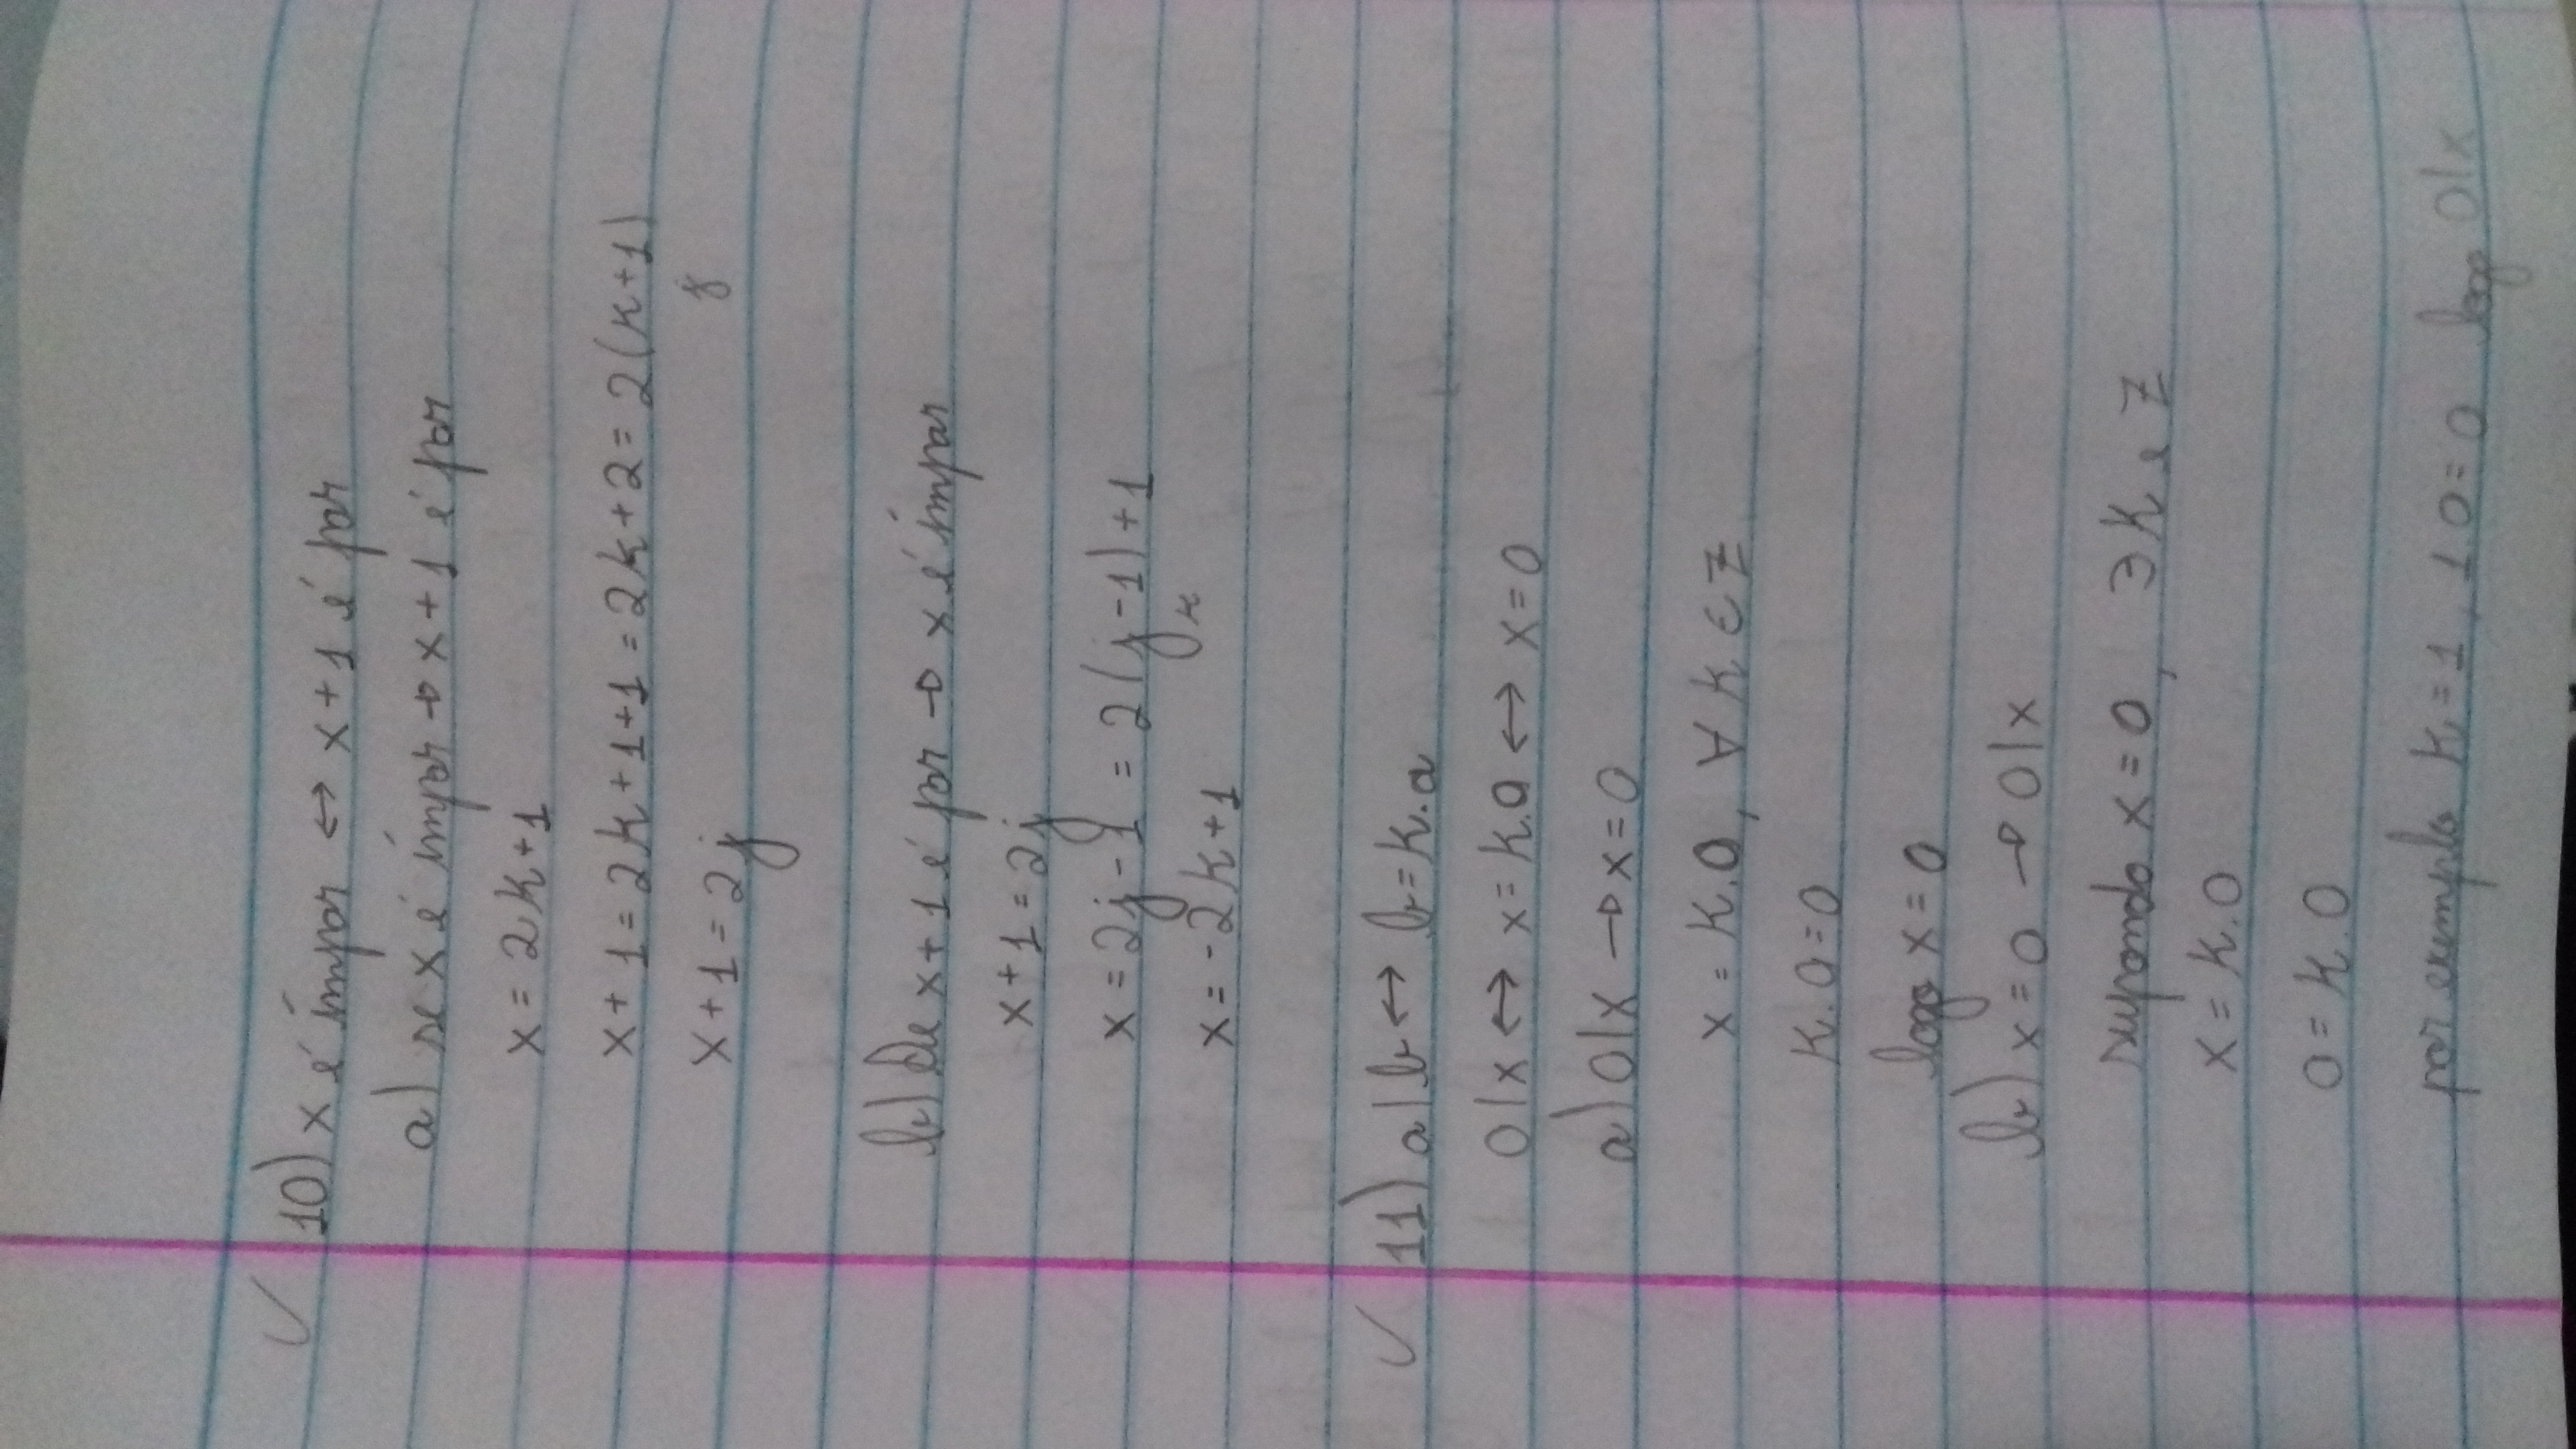 ✓ 10) x é ímpar ↔ x + 1 é par
a) se x é ímpar → x + 1 é par
x = 2k + 1
x + 1 = 2k + 1 + 1 = 2k + 2 = 2(k + 1)
j
x + 1 = 2j
b) Se x + 1 é par → x é ímpar
x + 1 = 2j
x = 2j - 1 = 2(j - 1) + 1
k
x = -2k + 1
✓ 11) a | b ↔ b = k.a
0 | x ↔ x = k.0 ↔ x = 0
a) 0 | x → x = 0
x = k.0, ∀ k ∈ Z
k.0 = 0
logo x = 0
b) x = 0 → 0 | x
supondo x = 0, ∃ k e Z
x = k.0
0 = k.0
por exemplo k = 1, 1.0 = 0 logo 0 | x